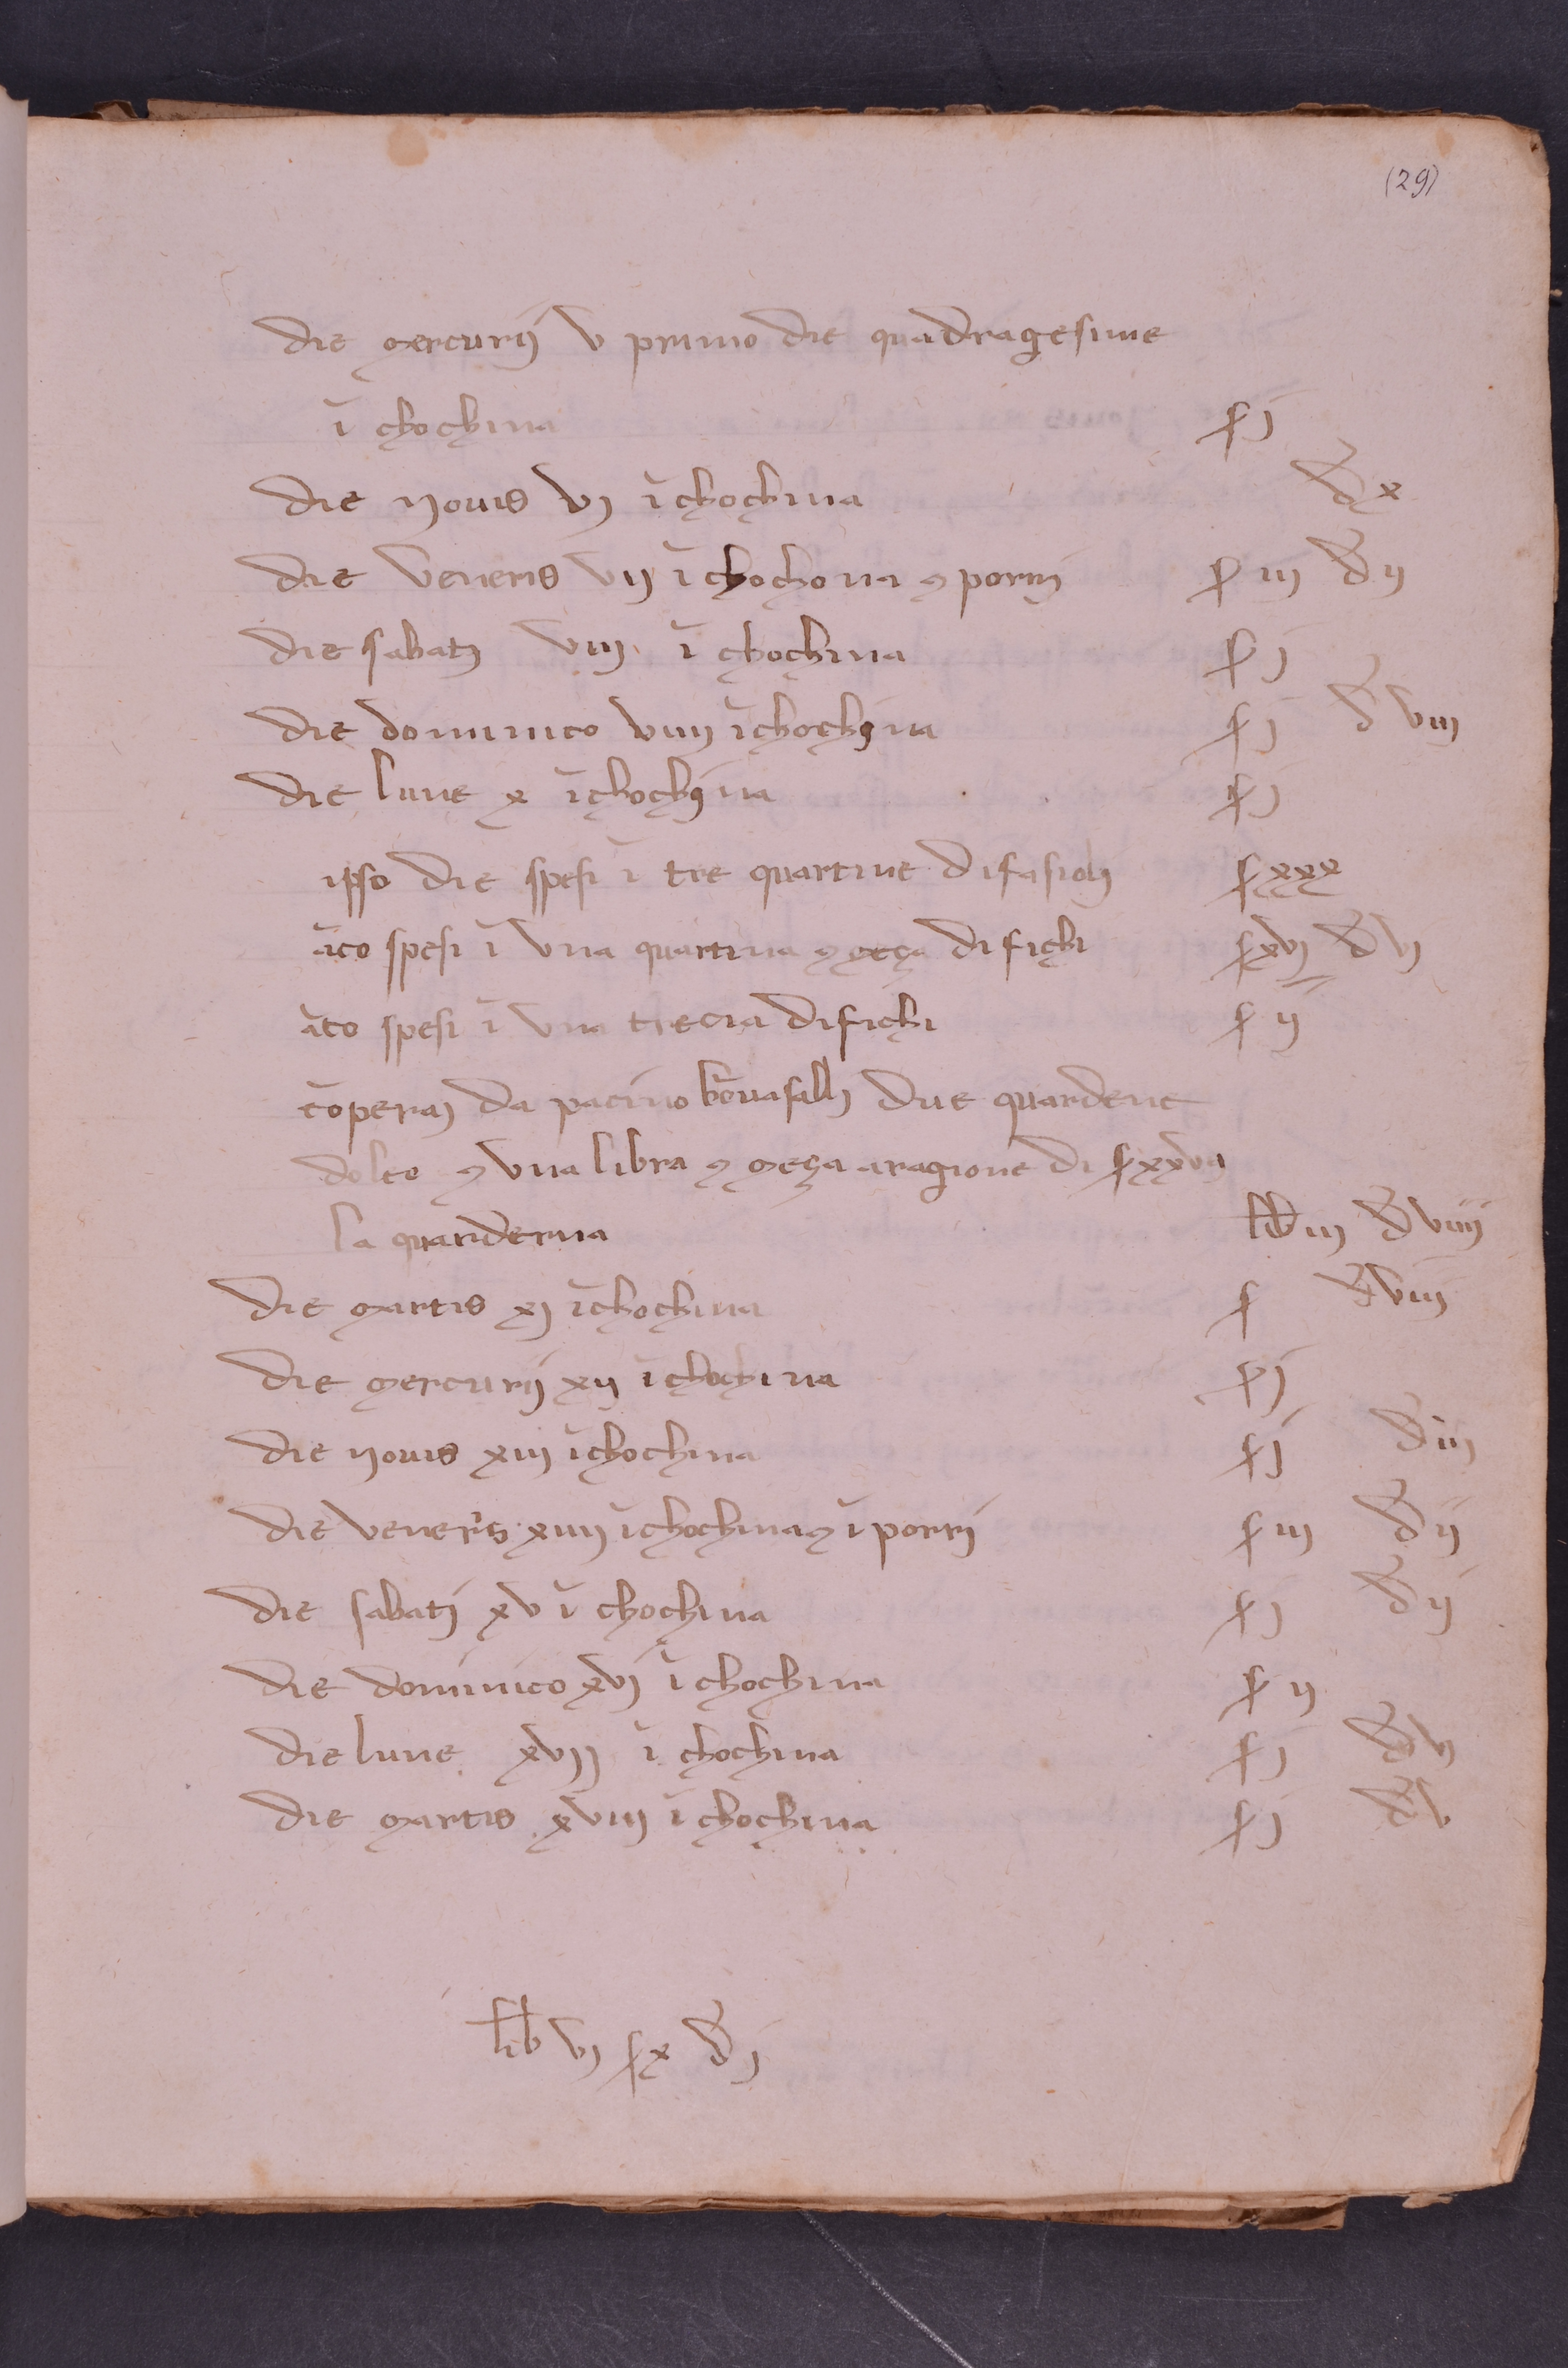 (29)
die mercurij v primo die quadragesime
ī chochina ſ j
die Jouis vj ī chochina đ x
die veneris vij ī chochona ⁊ porrj ſ iij đ ij
die sabatj viij ī chochina ſ j
die dominico viiij ī chochina ſ j đ viij
die lune x ī chochina ſ j
ipso die spesi ī tre quartine di fasiolj ſ xxx
āco spesi ī vna quartina ⁊ meça di fichi ſ xvj đ vj
āco spesi ī vna trecia di fichi ſ ij
cōperaj da pacino bōuasallj due quarderne
dolio ⁊ vna libra ⁊ meça a ragione di ſ xxvij
la quarderna lib iij đ viiij
die martis xj ī chochina ſ đ viij
die mercurij xij ī chochina ſ j
die Jouis xiij ī chochina ſ j đ iij
die veneris xiiij ī chochina ⁊ ī porrj ſ iij đ ij
die sabatj xv ī chochina ſ j đ ij
die dominico xvj ī chochina ſ ij
die lune xvij ī chochina ſ j đ vj
die martis xviij ī chochina ſ j đ v
lib vj ſ x đ j